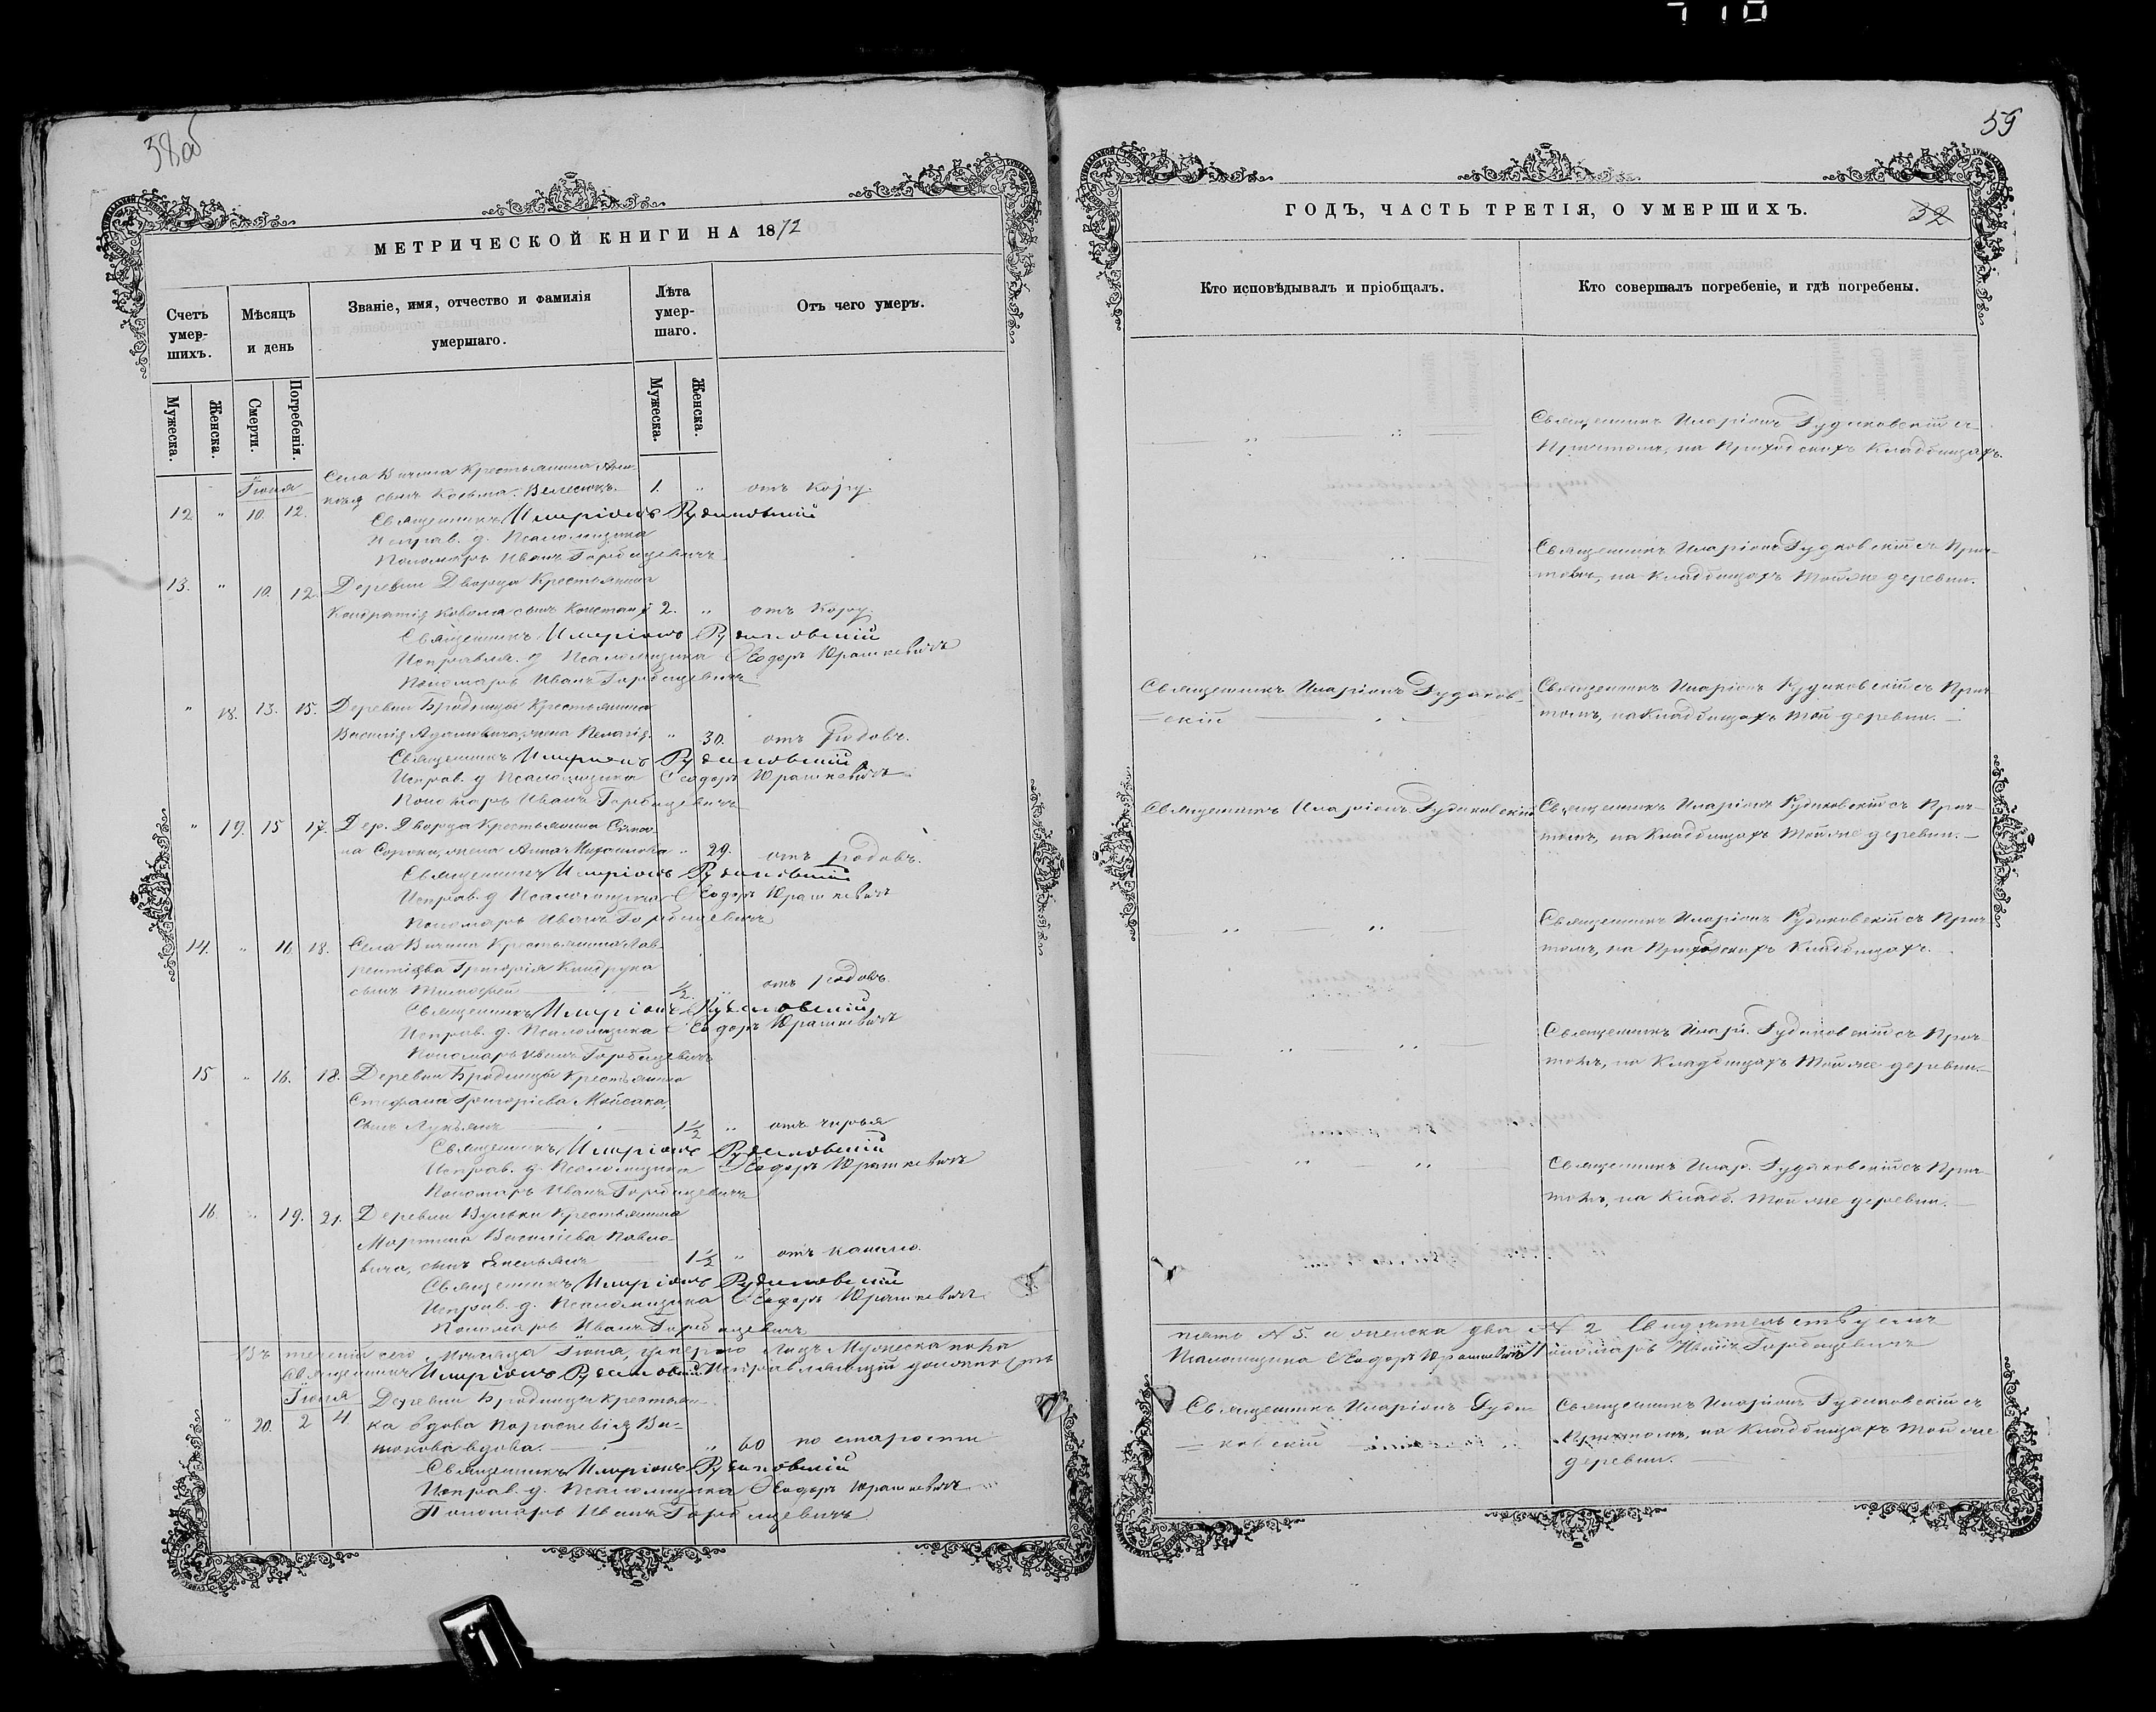 710
58об
МЕТРИЧЕСКОЙ КНИГИ НА 1872
Счетъ умер-шихъ.
Мѣсяцъ и день
Званіе, имя, отчество и фамилія умершаго.
Лѣта умер-шаго.
Отъ чего умеръ.
Мужеска. Женска. Смерти. Погребенія. Мужеска. Женска.
Іюня
Села Вичина Крестьянина
сынъ Козьма. 1. " отъ кору.
12 " 10. 12.
Священникъ Иларіонъ Рудаковскій
Исправ. д. Псаломщика
Пономарь Иванъ Горбацевичъ
13. " 10. 12. Деревни Дворца Крестьянина
Кондратія Коваля сынъ 2. " отъ кору.
Священникъ Иларіонъ Рудаковскій
Исправля. д Псаломщика Ѳеодоръ Юрашкевичъ
Пономарь Иванъ Горбацевичъ
" 18. 13. 15. Деревни Бродницы Крестьянина
Василія Адамовича, жена Пелагія. " 30. отъ родовъ.
Священникъ Иларіонъ Рудаковскій
Исправ. д Псаломщика Ѳеодоръ Юрашкевичъ
Пономарь Иванъ Горбацевичъ
" 19. 15 17. Дер. Дворца Крестьянина
на Сороки, жена Анна Михайлова " 29. отъ родовъ.
Священникъ Иларіонъ Рудаковскій
Исправ. д Псаломщика Ѳеодоръ Юрашкевичъ
Пономарь Иванъ Горбацевичъ
14. " 16 18. Села Вичина Крестьянина Лав-
рентіева Григорія Кондрука
сынъ Тимофей ½ " отъ родовъ.
Священникъ Иларіонъ Рудаковскій
Исправ. д. Псаломщика Ѳеодоръ Юрашкевичъ
Пономарь Иванъ Горбацевичъ
15 " 16. 18. Деревни Бродницы Крестьянина
Стефана Григоріева Мойсака,
сынъ Лукьянъ 1½ " отъ
Священникъ Иларіонъ Рудаковскій
Исправ. д. Псаломщика Ѳеодоръ Юрашкевичъ
Пономарь Иванъ Горбацевичъ
16 " 19. 21. Деревни Вульки Крестьянина
Мартина Василіева Павло-
вича, сынъ Емельянъ 1½ " отъ кашлю.
Священникъ Иларіонъ Рудаковскій
Исправ. д. Псаломщика Ѳеодоръ Юрашкевичъ
Пономарь Иванъ Горбацевичъ
Въ теченіи сего Мѣсяца Іюня, умерло лицъ Мужеска пола
Священникъ Иларіонъ Рудаковскій Исправляющій должность
Іюля Деревни Бродницы Крестьян-
" 20. 2 4 ка вдова Параскевія
вдова. " 60 по старости
Священникъ Иларіонъ Рудаковскій
Исправ. д. Псаломщика Ѳеодоръ Юрашкевичъ
Пономарь Иванъ Горбацевичъ
59
ГОДЪ, ЧАСТЬ ТРЕТІЯ, О УМЕРШИХЪ.
32
Кто исповѣдывалъ и пріобщалъ.
Кто совершалъ погребеніе, и гдѣ погребены.
Священникъ Иларіонъ Рудаковскій съ
Причтомъ, на Приходскихъ Кладбищахъ.
Священникъ Иларіонъ Рудаковскій съ Прич-
томъ, на кладбищахъ той же деревни.
Священникъ Иларіонъ Рудаков-
скій
Священникъ Иларіонъ Рудаковскій съ Прич
томъ, на Кладбищахъ той деревни.
Священникъ Иларіонъ Рудаковскій
Священникъ Иларіонъ Рудаковскій съ Прич-
томъ, на Кладбищахъ той же деревни.
Священникъ Иларіонъ Рудаковскій съ Прич
томъ, на Приходскихъ Кладбищахъ.
Священникъ Илар. Рудаковскій съ Прич-
томъ, на Кладбищахъ той же деревни.
Священникъ Илар. Рудаковскій съ Прич-
томъ, на Кладб. той же деревни.
пять № 5. а женска два № 2 Свидѣтельствуемъ
Псаломщика Ѳеодоръ Юрашкевичъ Пономарь Иванъ Горбацевичъ
Священникъ Иларіонъ Руда-
ковскій
Священникъ Иларіонъ Рудаковскій съ
Причтомъ, на Кладбищахъ той же
деревни.